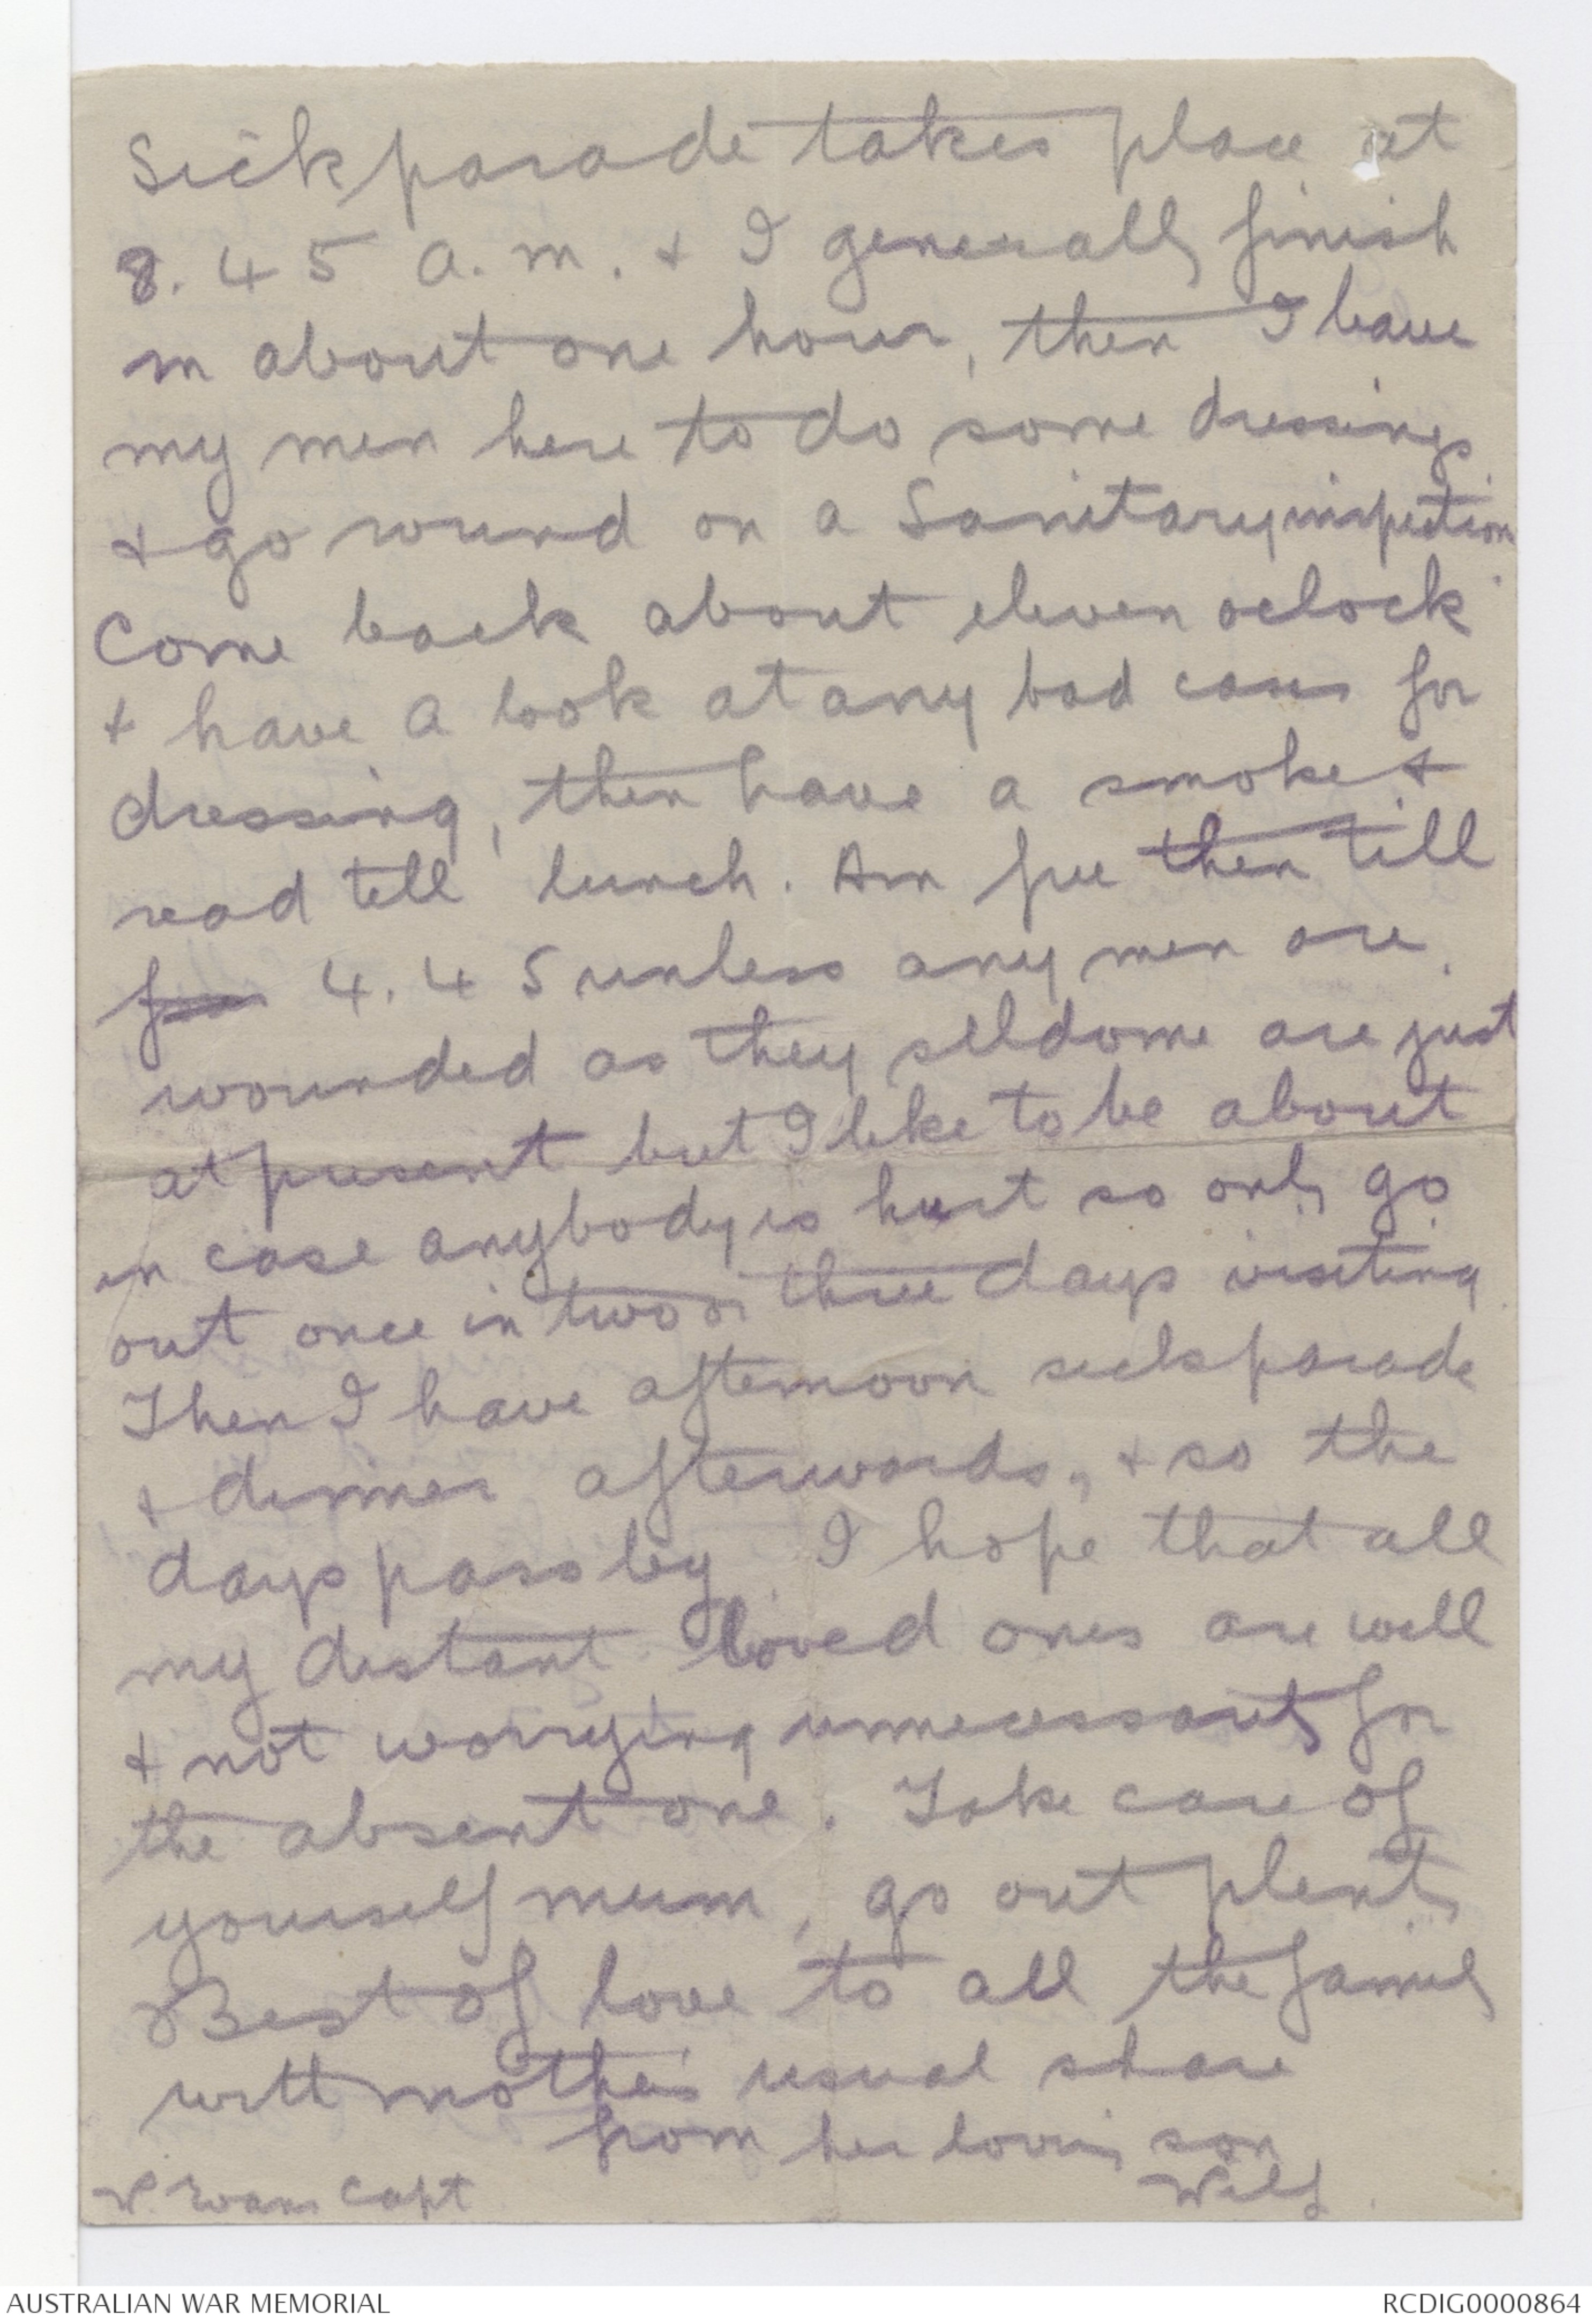 Sick parade takes place at
8.45 a.m. & I generally finish
in about one hour, then I leave
my men here to do some dressings
& go round on a Sanitary inspection
Come back about eleven oclock
& have a look at any bad cases for
dressing, then have a smoke &
read till lunch. Am free then till
4.45 unless any men are
wounded as they selldome are just
at present but I like to be about
in case anybody is hurt so only go
out once in two or three days visiting
Then I have afternoon sick parade
& dinner afterwards, & so the
days pass by. I hope that all
my distant loved ones are well
& not worrying unnecessarily for
the absent one. Take care of
yourself mum, go out plenty
Best of love to all the family
with mother's usual share
from her loving son
Wilf.
W. Evans Capt
AUSTRALIAN WAR MEMORIAL
RCDIG0000864